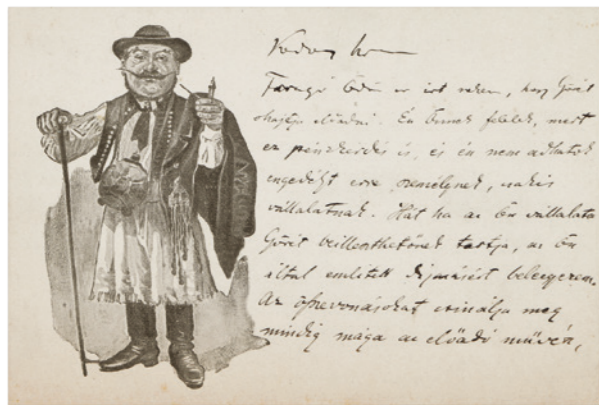 Faragó Ödön úr írt nekem, hogy Göröt
óhajtja előadni. Én Önnek felelek, mert
ez pénzkérdés is, és én nem adhatok
engedélyt erre személynek, csakis
vállalatnak. Hát ha az Ön vállalata
Göröt beilleszthetőnek tartja, az Ön
által említett díjazásért beleegyezem.
Az összevonásokat csinálja meg
mindig maga az előadó művész,